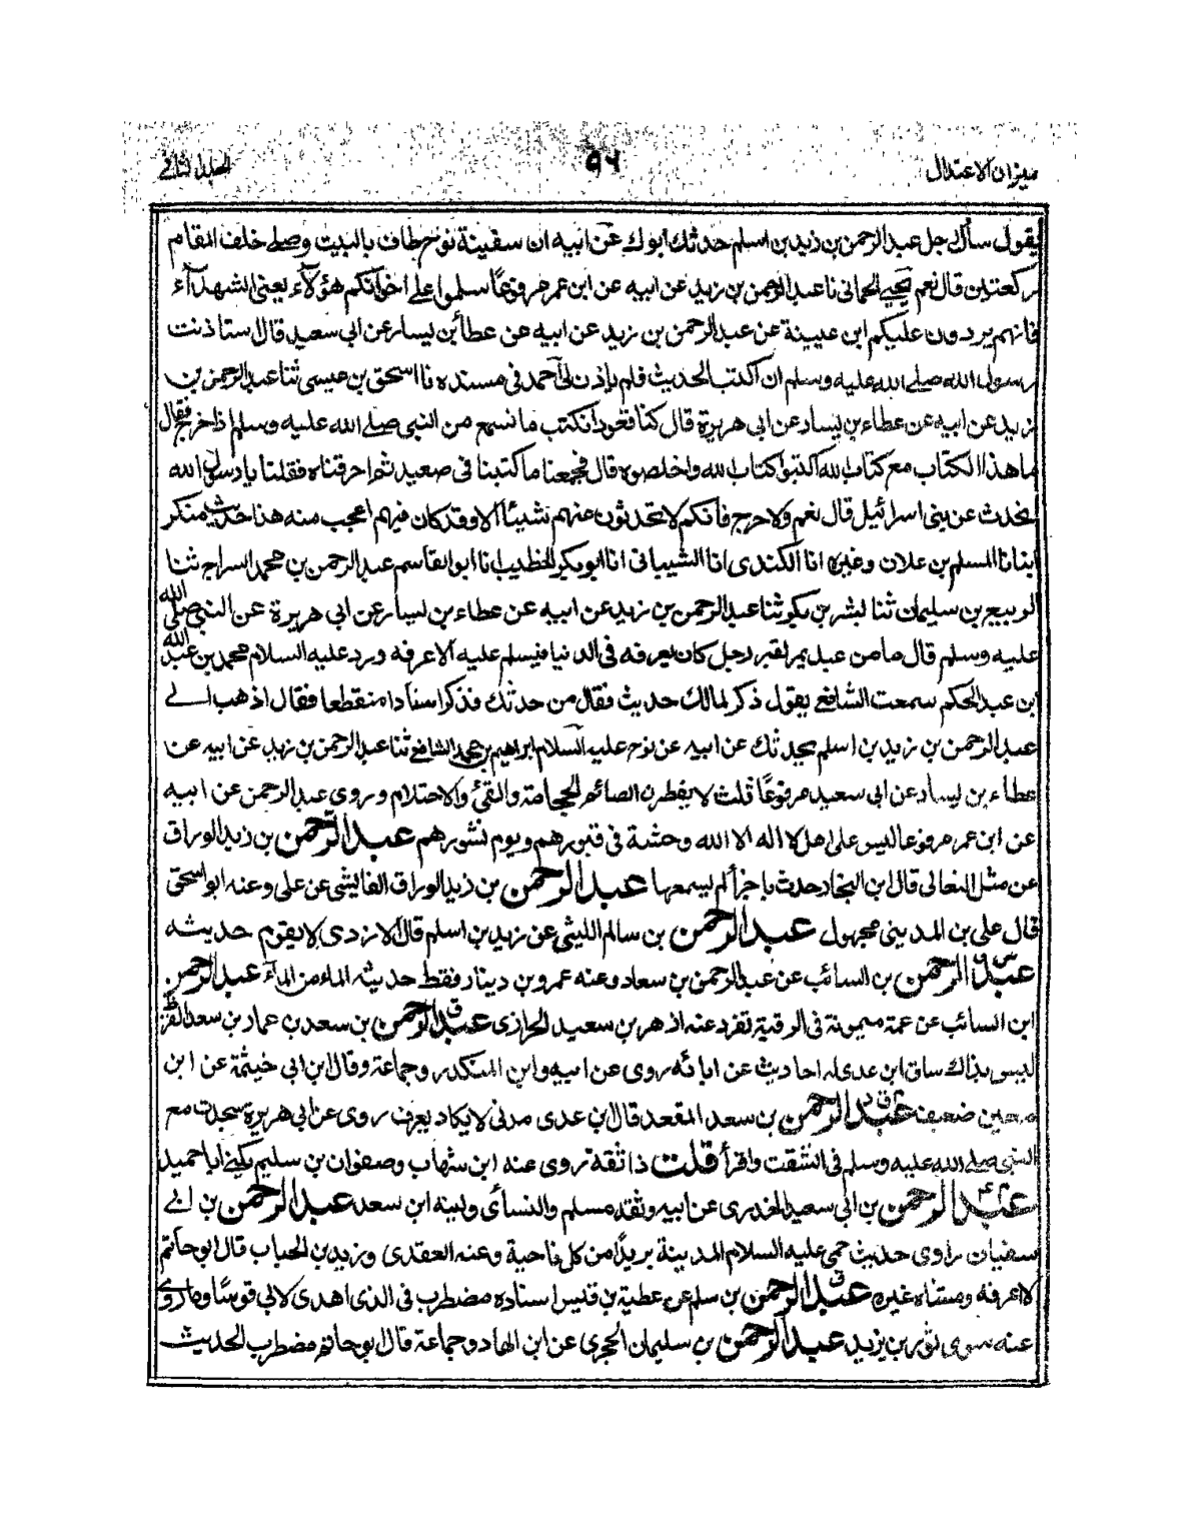 ميزان الاعتدال
٩٦
الجلد الثاني
يقول سأل رجل عبد الرحمن بن زيد بن اسلم حدثك ابوك عن ابيه ان سفينة نوح طاف بالبيت وصلى خلف المقام
ركعتين قال نعم يحيى الحماني نا عبد الرحمن بن زيد عن ابيه عن ابن عمر مرفوعًا سلموا على اخوانكم هؤلاء يعني الشهداء
فانهم يردون عليكم ابن عيينة عن عبد الرحمن بن زيد عن ابيه عن عطأ بن يسار عن ابي سعيد قال ستاذنت
رسول الله صلى الله عليه وسلم ان اكتب الحديث فلم ياذن لي احمد في مسنده نا اسحق بن عيسى ثنا عبد الرحمن بن
زيد عن ابيه عن عطاء بن يسار عن ابي هريرة قال كنا قعودا نكتب ما نسمع من النبي صلى الله عليه وسلم اذ اخرج فقال
ما هذا الكتاب مع كتاب الله اكتبوا كتاب الله واخلصوه قال فجمعنا ما كتبنا في صعيد ثم احرقناه فقلنا يا رسول الله
نحدث عن بني اسرائيل قال نعم ولا حرج فانكم لا تحدثون عنهم شيئا الا وقد كان فيهم اعجب منه هذا حديث منكر
انبانا المسلم بن علان وغيره انا الكندي انا الشيباني انا ابو بكر الخطيب انا ابو القاسم عبد الرحمن بن محمد السراج ثنا
الربيع بن سليمان ثنا بشر بن بكر ثنا عبد الرحمن بن زيد عن ابيه عن عطاء بن يسار عن ابي هريرة عن النبي صلى الله
عليه وسلم قال ما من عبد يمر بقبر رجل كان يعرفه في الدنيا فيسلم عليه الا عرفه ورد عليه السلام محمد بن عبد الله
ابن عبد الحكم سمعت الشافعي يقول ذكر لمالك حديث فقال من حدثك فذكر اسنادا منقطعا فقال اذهب الى
عبد الرحمن بن زيد بن اسلم يحدثك عن ابيه عن نوح عليه السلام ابراهيم بن محمد الشافعي ثنا عبد الرحمن بن زيد عن ابيه عن
عطاء بن يسار عن ابي سعيد مرفوعًا ثلث لا يفطرن الصائم الحجامة والقئ والاحتلام وروى عبد الرحمن عن ابيه
عن ابن عمر مرفوعا ليس على اهل لا اله الا الله وحشة في قبورهم ويوم نشورهم عبد الرحمن بن زيد الوراق
عن مثل النعالي قال ابن النجار حدث باجزأ لم يسمعها عبد الرحمن بن زيد الوراق الفايشي عن علي وعنه ابو اسحق
قال علي بن المديني مجهول عبد الرحمن بن سالم الليثي عن زيد بن اسلم قال الازدي لا يقوم حديثه
عبد الرحمن بن السائب عن عبد الرحمن بن سعاد وعنه عمرو بن دينار فقط حديثه الماء من الماء عبد الرحمن
ابن السائب عن عمة ميمونة في الرقية تفرد عنه ازهر بن سعيد الحرازي عبد الرحمن بن سعد بن عمار بن سعد القرظ
ليس بذاك ساق ابن عدي له احاديث عن ابائه روى عن ابيه وابن المنكدر وجماعة وقال ابن ابي خيثمة عن ابن
معين ضعيف عبد الرحمن بن سعد المقعد قال ابن عدي مدني لا يكاد يعرف روى عن ابي هريرة سجدت مع
النبي صلى الله عليه وسلم في انشقت واقرأ قلت ذا ثقة روى عنه ابن شهاب وصفوان بن سليم يكنى ابا حميد
عبد الرحمن بن ابي سعيد الخدري عن ابيه وثقه مسلم والنسائي ولينه ابن سعد عبد الرحمن بن ابي
سفيان راوي حديث حمى عليه السلام المدينة بريدًا من كل ناحية وعنه العقدي وزيد بن الحباب قال ابو حاتم
لا اعرفه ومشاه غيره عبد الرحمن بن سلم عن عطية بن قيس اسناده مضطرب في الذي اهدى لابي قوسًا وما روى
عنه سوى ثور بن يزيد عبد الرحمن بن سليمان الحجري عن ابن الهاد وجماعة قال ابو حاتم مضطرب الحديث